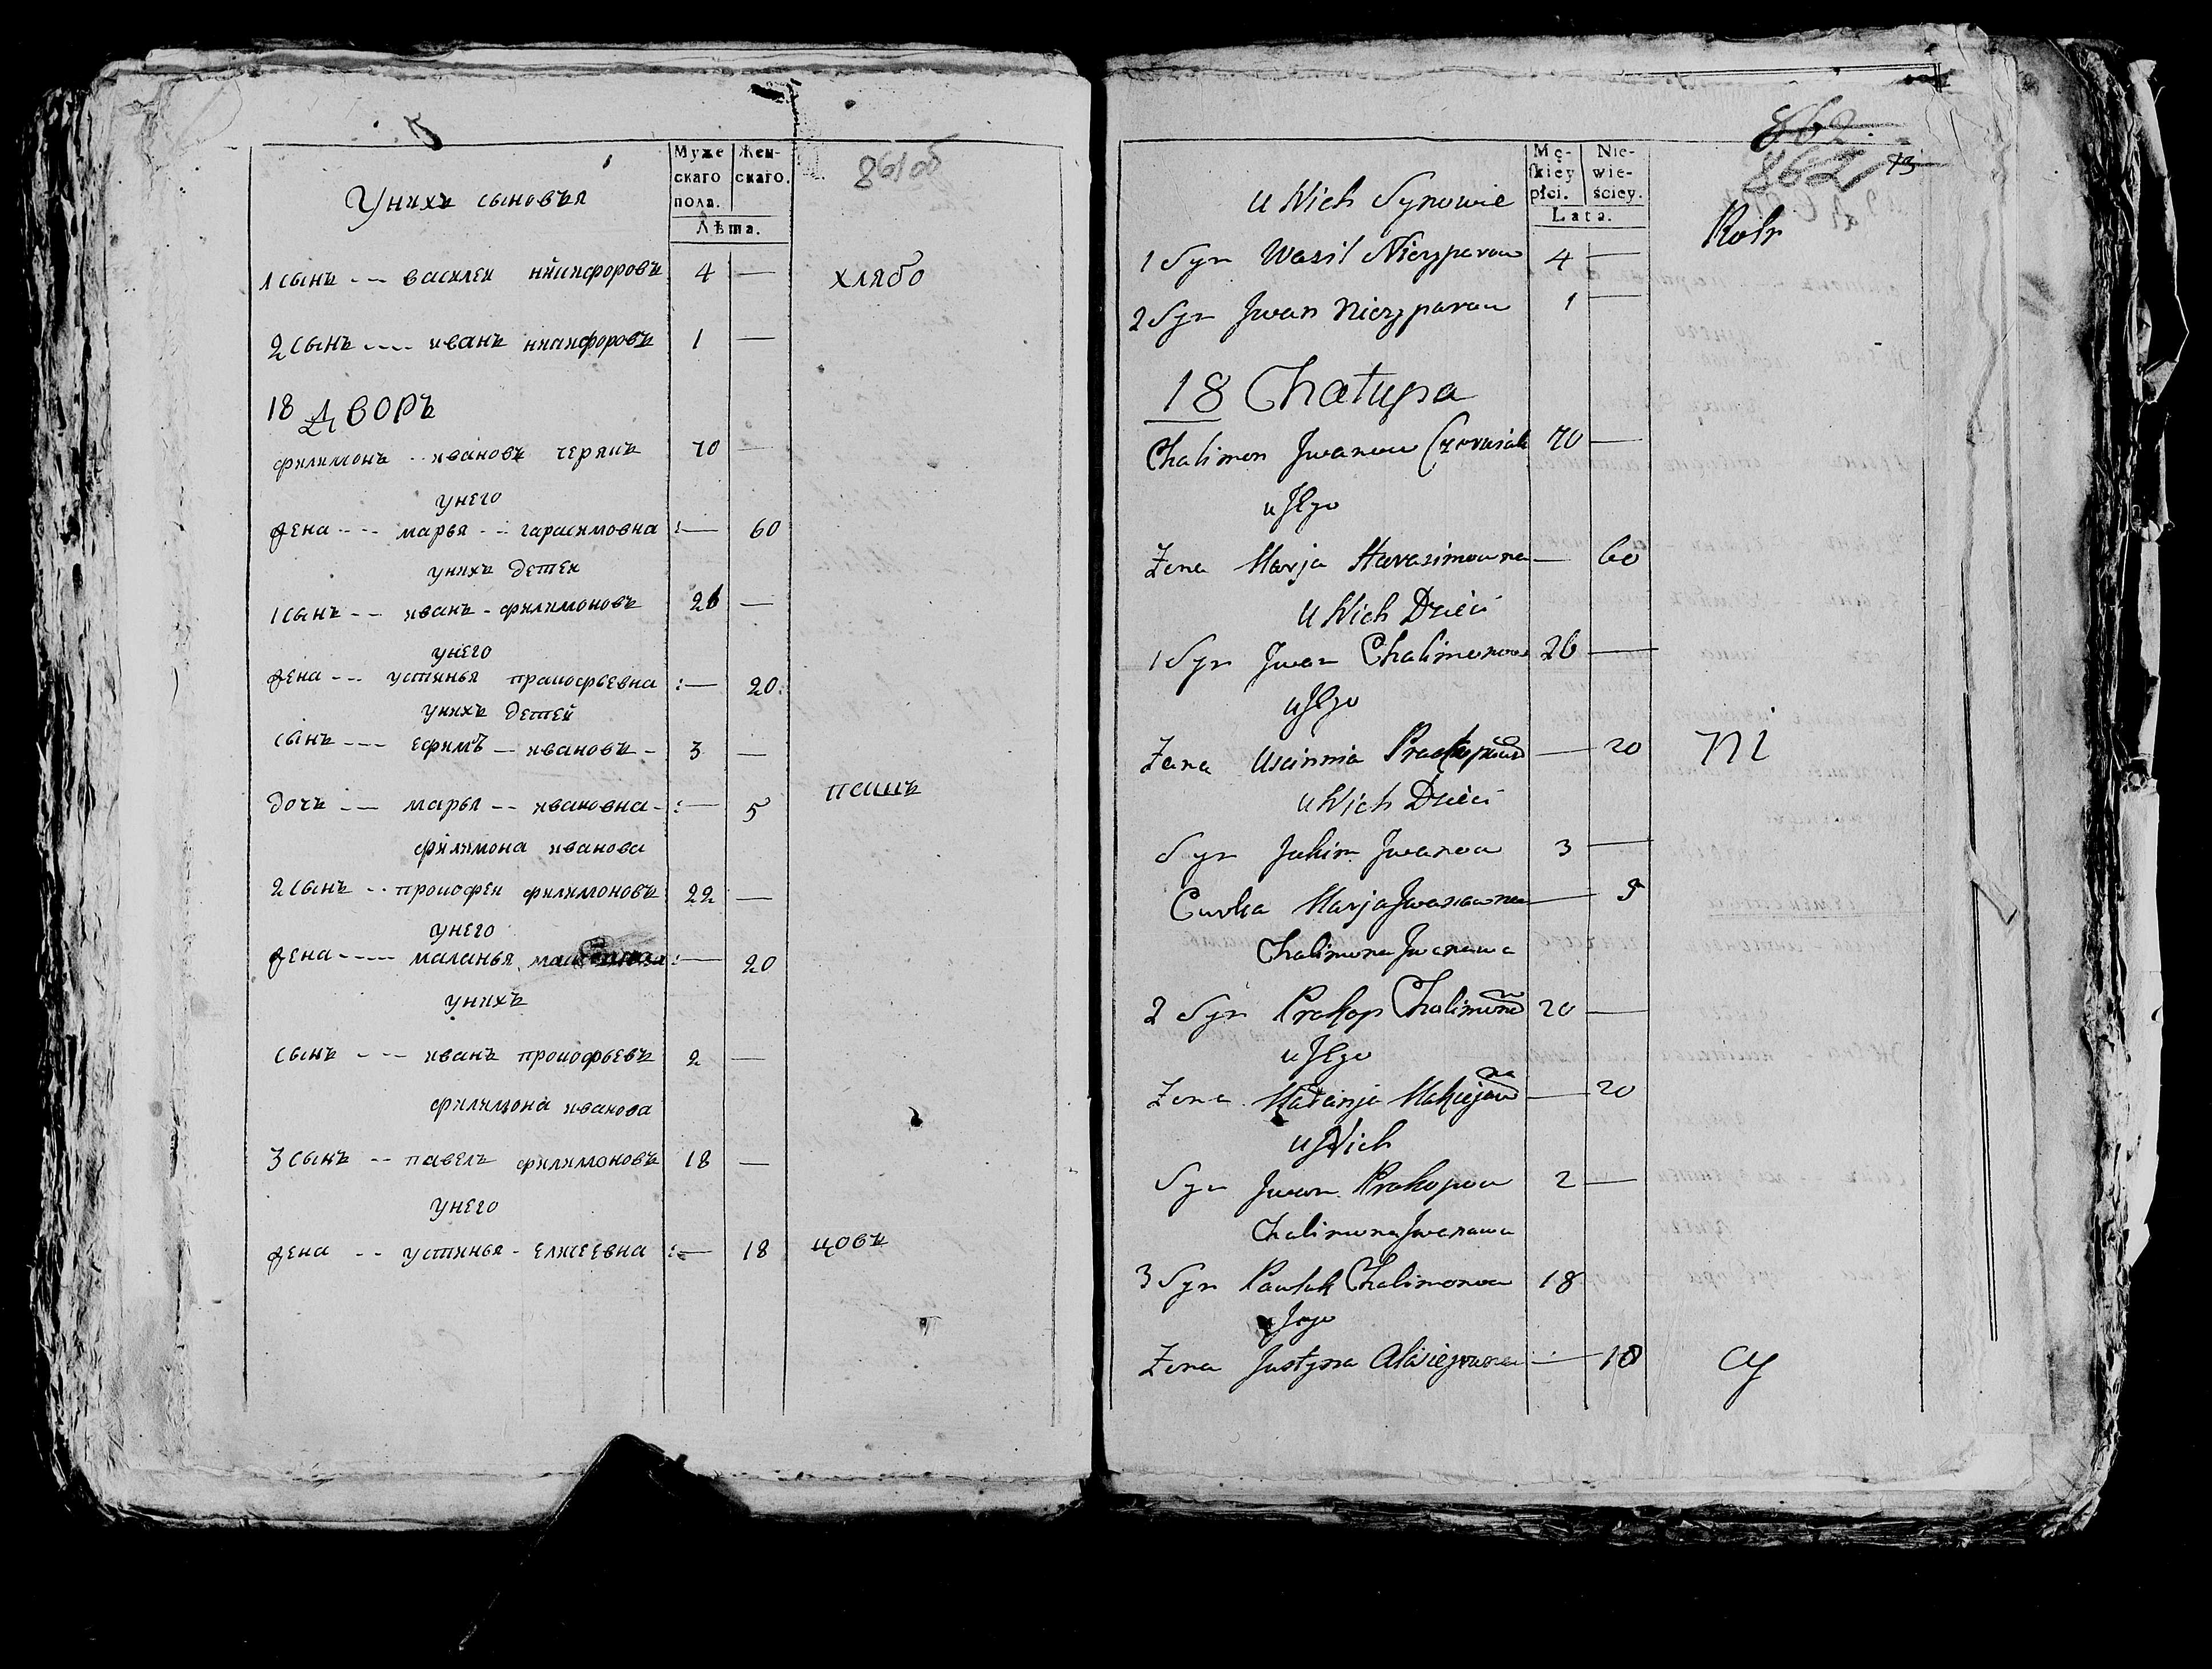 Муже
скаго
пола.
Жен-
скаго.
Лѣта.
861об
Унихъ сыновья
1 сынъ -- василеи никифоровъ 4 —
хлябо
2 сынъ ---- иванъ никифоровъ 1 —
18 Дворъ
филимонъ -- ивановъ черякъ 70 —
унего
жена --- марья --- гарасимовна :— 60
унихъ детеи
1 сынъ -- иванъ - филимоновъ 26 —
унего
жена --- устинья прокофьевна :— 20
унихъ детей
сынъ --- ефимъ -- ивановъ - 3 —
дочь --- марья -- ивановна - :— 5
пашъ
филимона иванова
2 сынъ -- прокофеи филимоновъ 22 —
унего
жена ----- маланья :— 20
унихъ
сынъ --- иванъ прокофьевъ 2 —
филимона иванова
3 сынъ -- павелъ филимоновъ 18 —
унего
жена -- устинья - елисеевна :— 18
цовъ
Mę-
skiey
płci.
Nie-
wie-
ściey.
Lata.
862
862
13
u Nich Synowie
1 Syn Wasil Niczyparow 4 —
2 Syn Jwan Niczyparow 1 —
18 Chałupa
Chalimon Jwanow 70 —
u Jego
Zona Marja Harasimowna — 60
u Nich Dzieci
1 Syn Jwan Chalimonow 26 —
u Jego
Zona Uscinnia — 20
ni
u Nich Dzieci
Syn Jakim Jwanow 3 —
Curka Marja Jwanowna — 5
Chalimona Jwanawa
2 Syn Prakop Chalimonow 20 —
u Jego
Zona Małanja — 20
u Nich
Syn Jwan Prakopow 2 —
Chalimona Jwanawa
3 Syn Pawluk Chalimonow 18
u Jego
Zona Justyna — 18
cy